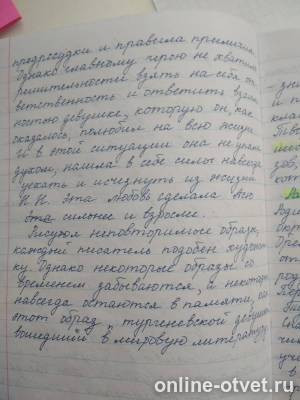 предрассудки и правила приличия.
Однако главному герою не хватило
решительности взять на себя от-
ветственность и ответить взаим-
ностью девушке, которую он, как
оказалось, полюбил на всю жизнь.
И в этой ситуации она не упала
духом, нашла в себе силы навсегда
уехать и исчезнуть из жизни
Н.Н. Эта любовь сделала Асю
сильнее и взрослее.
Рисуя неповторимые образы,
каждый писатель подобен художни-
ку. Однако некоторые образы со
временем забываются, а некоторые
навсегда остаются в памяти, как
этот образ тургеневской девушки,
вошедший в мировую литературу.
online-otvet.ru